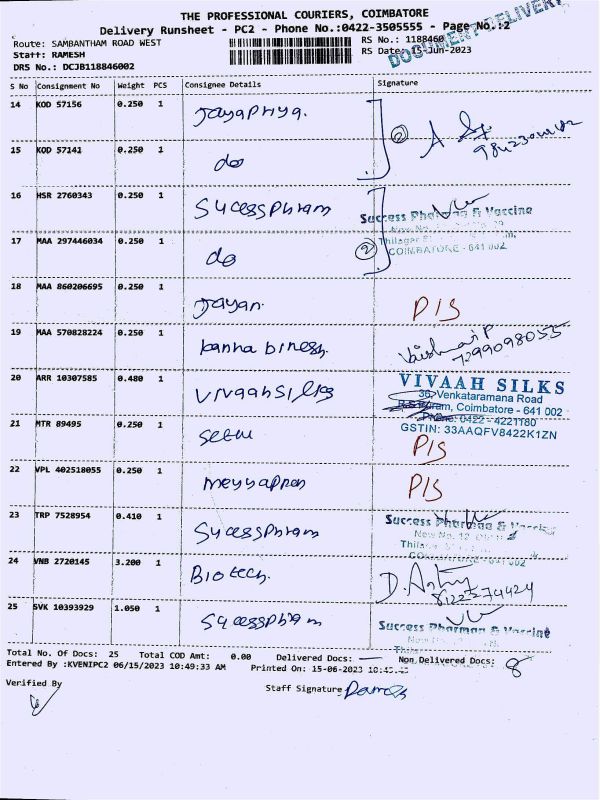 THE PROFESSIONAL COURIERS, COIMBATORE
Delivery Runsheet - PC2 - Phone No.:0422-3505555 - Page No.:2
Route: SAMBANTHAM ROAD WEST RS No.: 1188460
Staff: RAMESH RS Date: 15-Jun-2023
DRS No.: DCJB118846002
S No Consignment No Weight PCS Consignee Details Signature
14 KOD 57156 0.250 1 Jayapriya.
15 KOD 57141 0.250 1 do
16 HSR 2760343 0.250 1 Sucessphram
Success Pharma & Vaccine
17 MAA 297446034 0.250 1 do
COIMBATORE - 641 002
18 MAA 860206695 0.250 1 Jayan. P/S
19 MAA 570828224 0.250 1 kanna binesh. Vaishnavi P
7299098055
20 ARR 10307585 0.480 1 Vivaahsilks
VIVAAH SILKS
36, Venkataramana Road
R.S.Puram, Coimbatore - 641 002
Phone: 0422 - 4221180
GSTIN: 33AAQFV8422K1ZN
21 MTR 89495 0.250 1 Sethu P/S
22 VPL 402518055 0.250 1 meyyappan P/S
23 TRP 7528954 0.410 1 Sycessphram
Success Pharma & Vaccine
24 VNB 2720145 3.200 1 Biotech.
8122274424
25 SVK 10393929 1.050 1 Sycessphram
Success Pharman & Vaccine
Total No. Of Docs: 25 Total COD Amt: 0.00 Delivered Docs: Non Delivered Docs: 8
Entered By :KVENIPC2 06/15/2023 10:49:33 AM Printed On: 15-06-2023
Verified By Staff Signature Ramesh